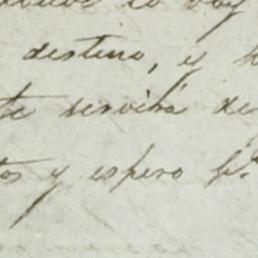 lo voy
destino, y
te servirá de
tos y espero p.r